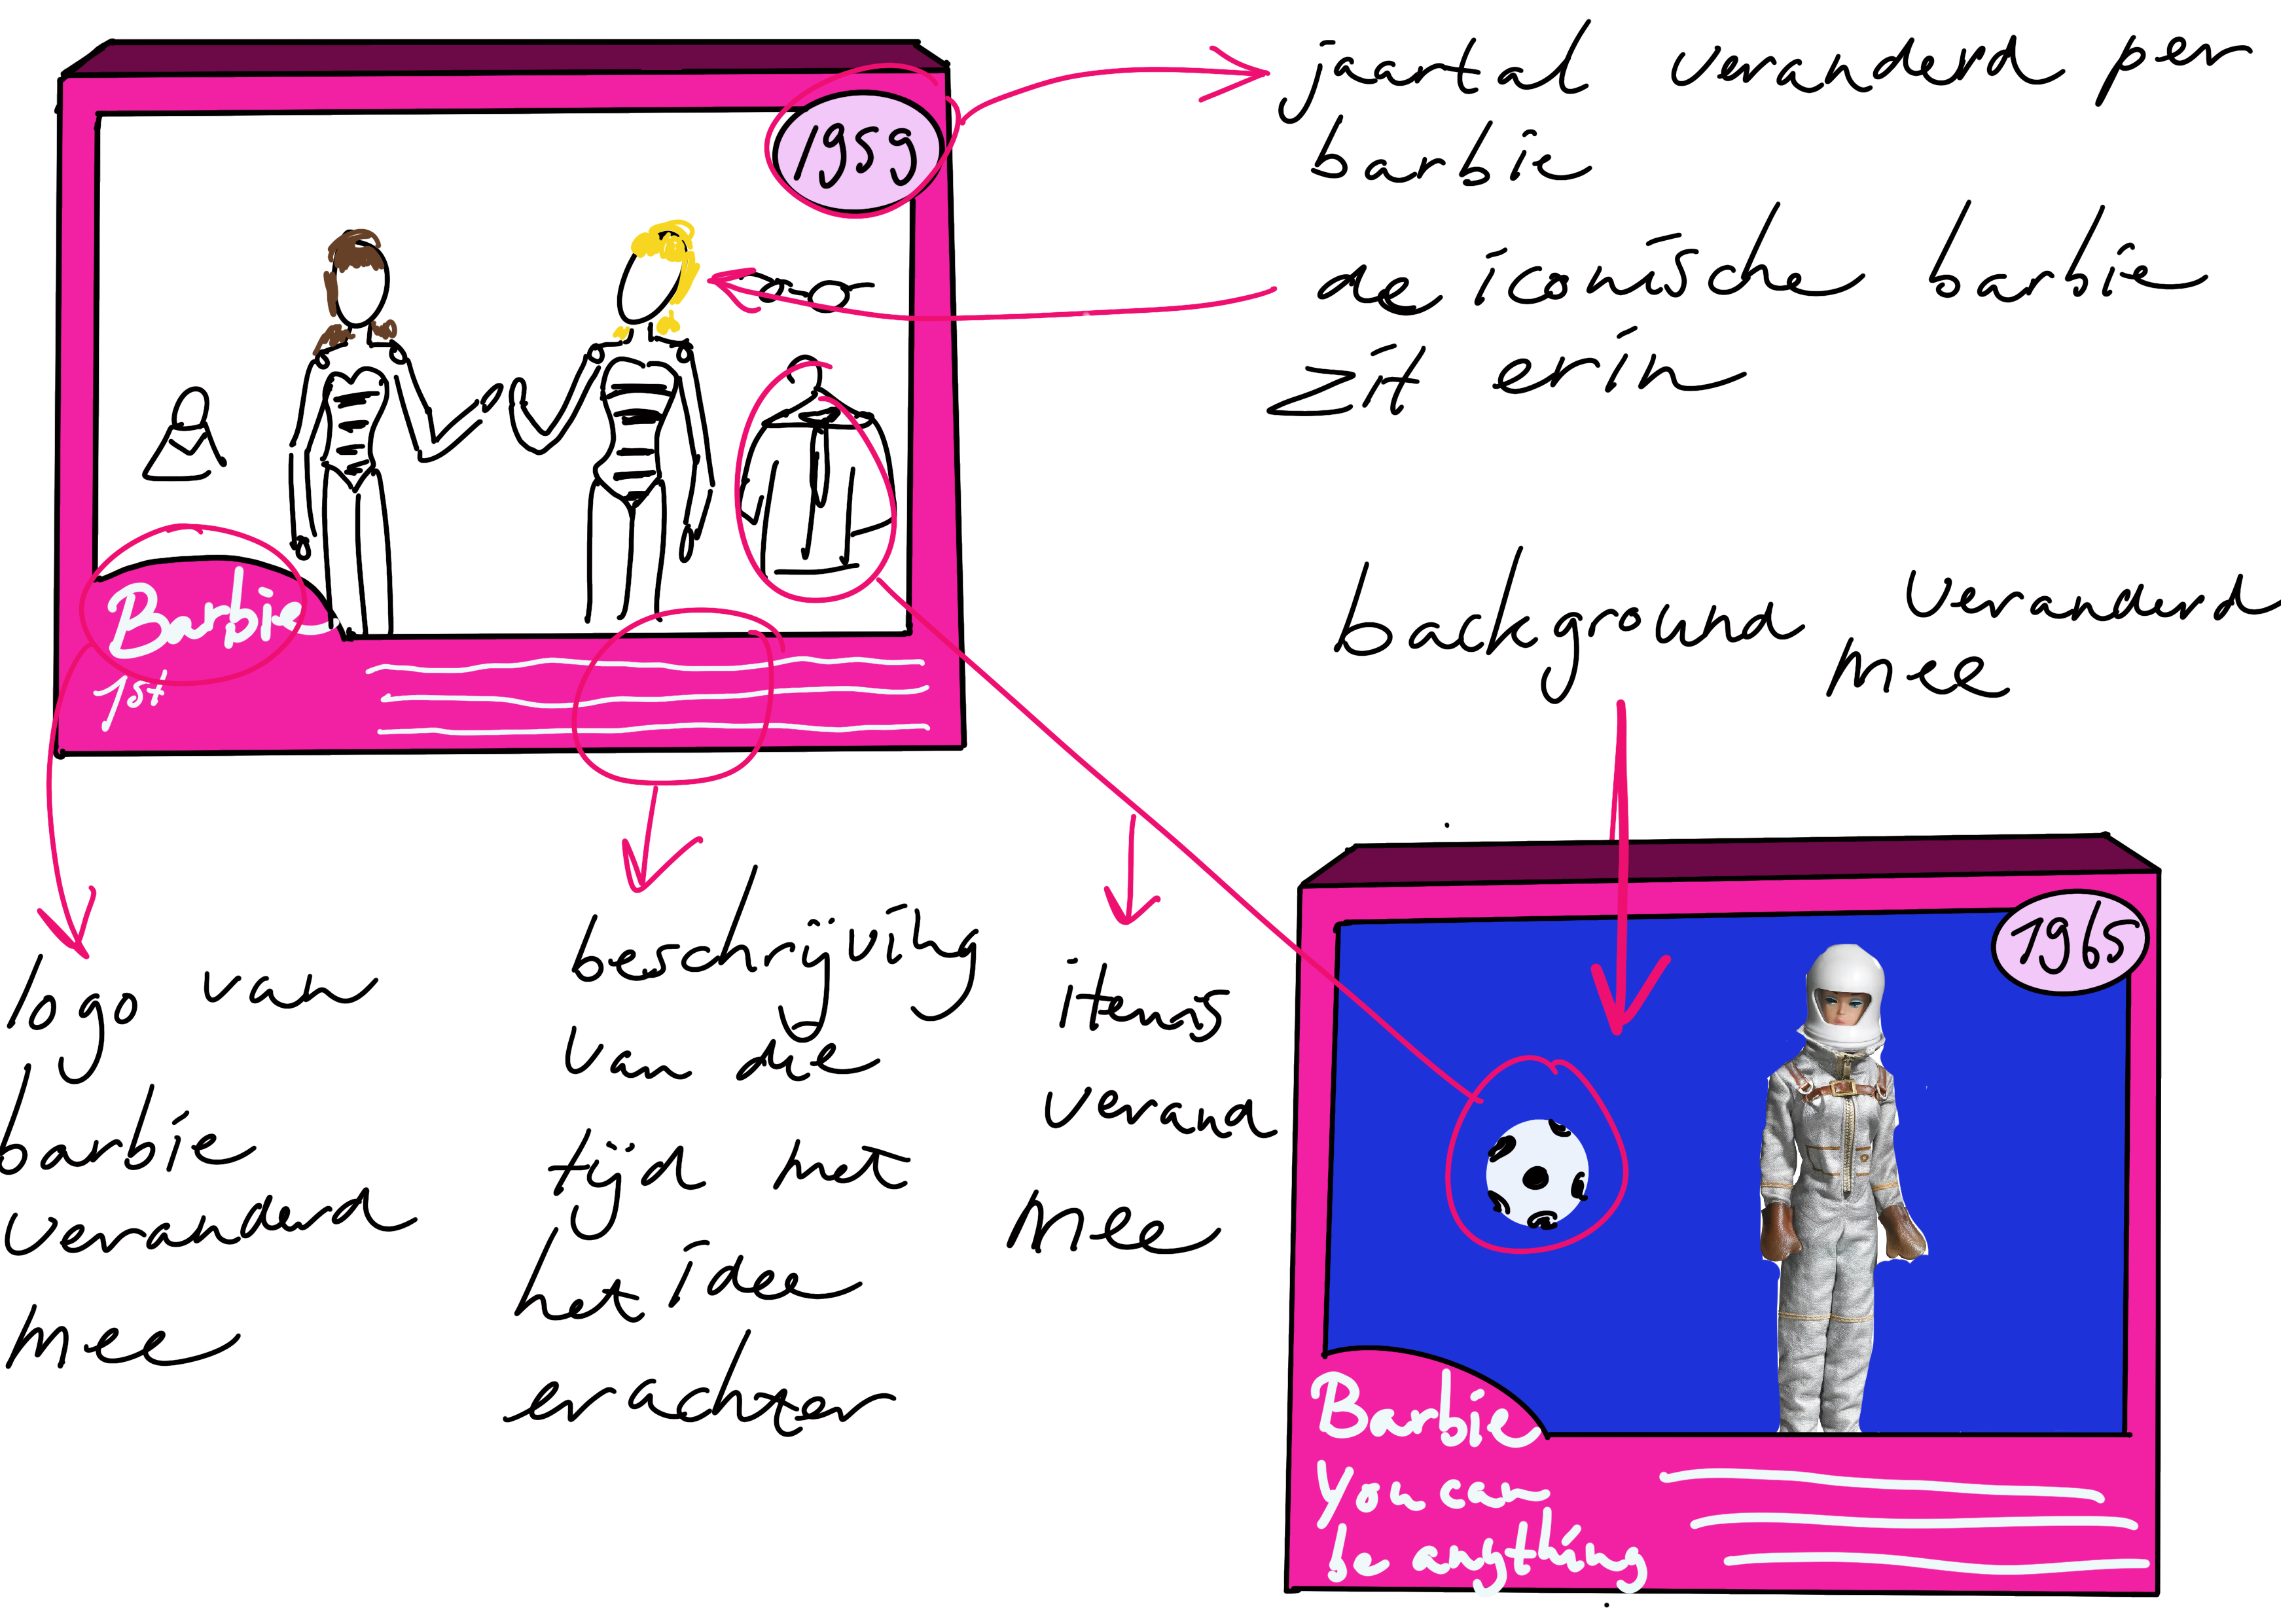 1959
Barbie
1st
jaartal veranderd per
barbie
de iconische barbie
zit erin
background veranderd
mee
logo van
barbie
veranderd
mee
beschrijving
van die
tijd met
het idee
erachter
items
verand
mee
1965
Barbie
You can
be anything